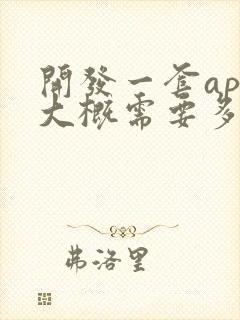 開發一套ap
大概需要多
弗洛里